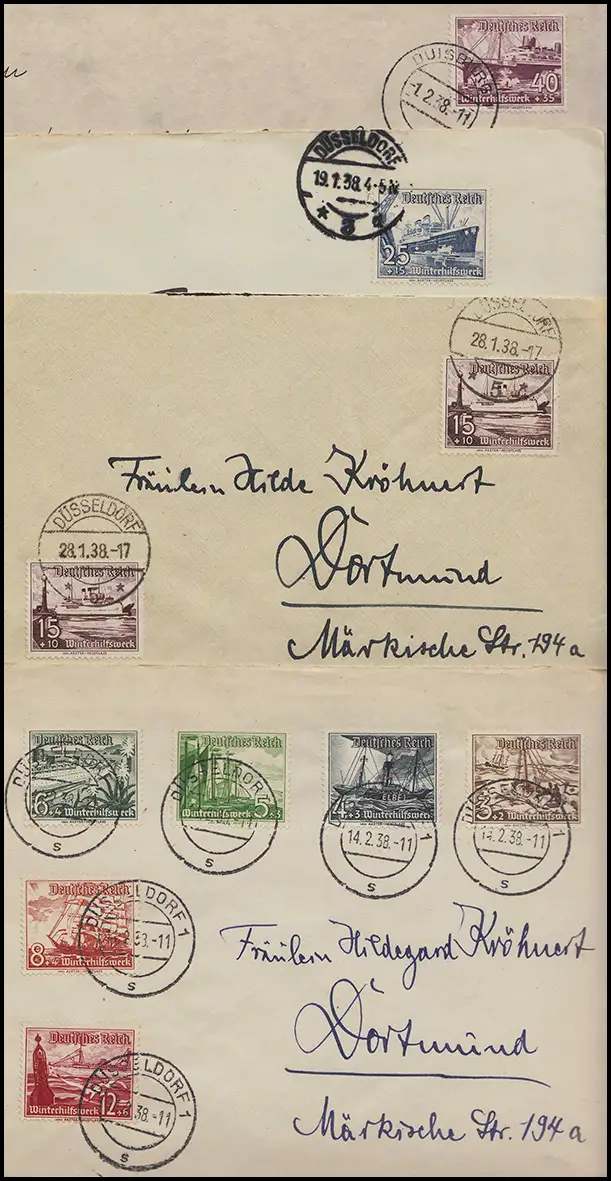 Deutsches Reich
40
Winterhilfswerk +35
DUISBURG
-1.2.38.-11
DÜSSELDORF
19.1.38.4-5N
* 3 d
Deutsches Reich
25
+15 Winterhilfswerk
DÜSSELDORF
28.1.38.-17
* 5 *
Deutsches Reich
15
+10 Winterhilfswerk
Fräulein Hilde Kröhnert
Dortmund
Märkische Str. 194a
DÜSSELDORF
28.1.38.-17
* 5 *
Deutsches Reich
15
+10 Winterhilfswerk
Deutsches Reich
6
+4 Winterhilfswerk
DÜSSELDORF
s
Deutsches Reich
5
Winterhilfswerk +3
DÜSSELDORF
s
Deutsches Reich
ELBE 1
4
+3 Winterhilfswerk
DÜSSELDORF 1
14.2.38.-11
s
Deutsches Reich
3
+2 Winterhilfswerk
DÜSSELDORF 1
14.2.38.-11
s
Deutsches Reich
8
+4 Winterhilfswerk
DÜSSELDORF 1
.2.38.-11
s
Deutsches Reich
12
Winterhilfswerk +6
DÜSSELDORF 1
.2.38.-11
s
Fräulein Hildegard Kröhnert
Dortmund
Märkische Str. 194a